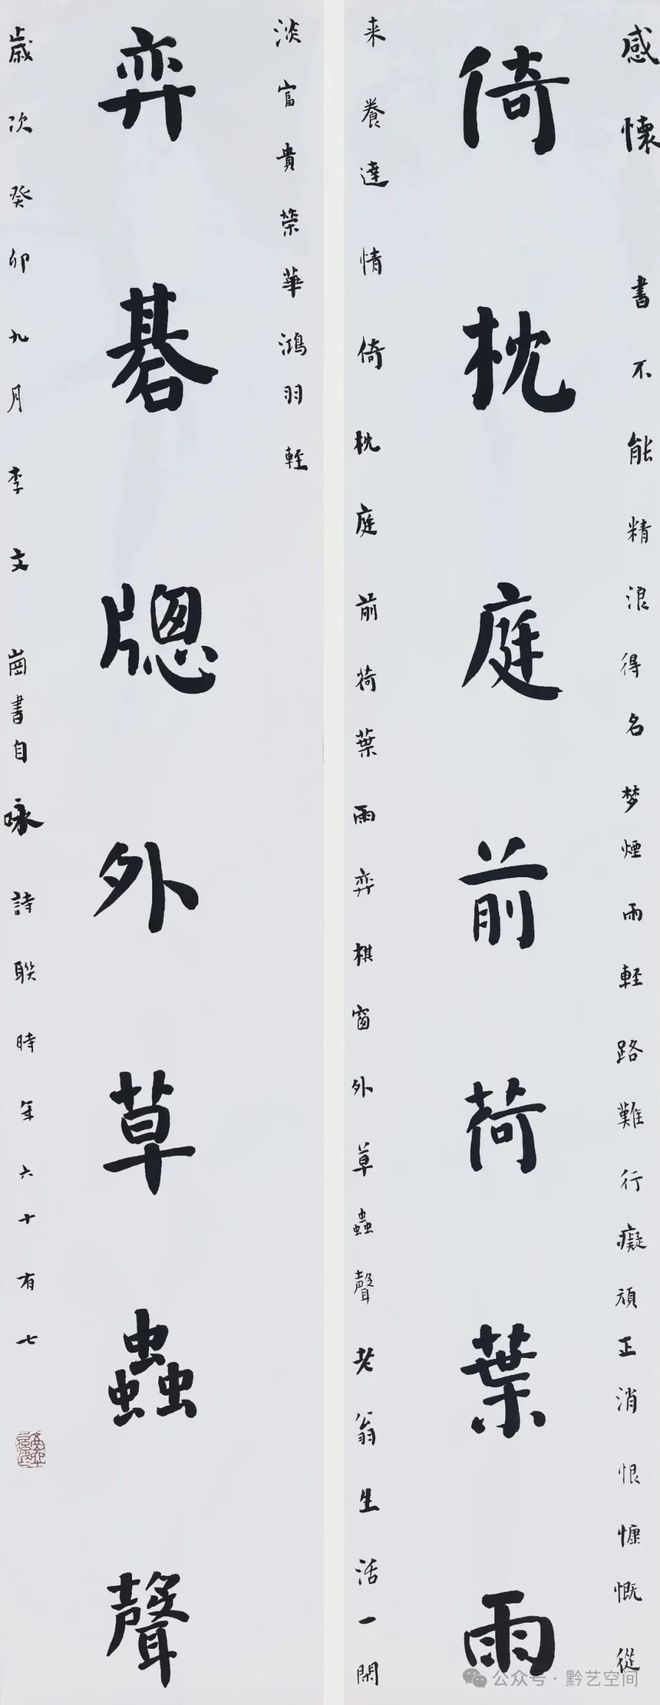 感懷 書不能精浪得名梦煙雨輕路難行癡頑正消恨慷慨從
倚枕庭前荷葉雨
来養達情倚枕庭前荷葉雨弈棋窗外草蟲聲老翁生活一閑
淡富貴榮華鴻羽輕
弈碁牕外草蟲聲
歲次癸卯九月李文崗書自咏詩联時年六十有七
公众号·黔艺空间